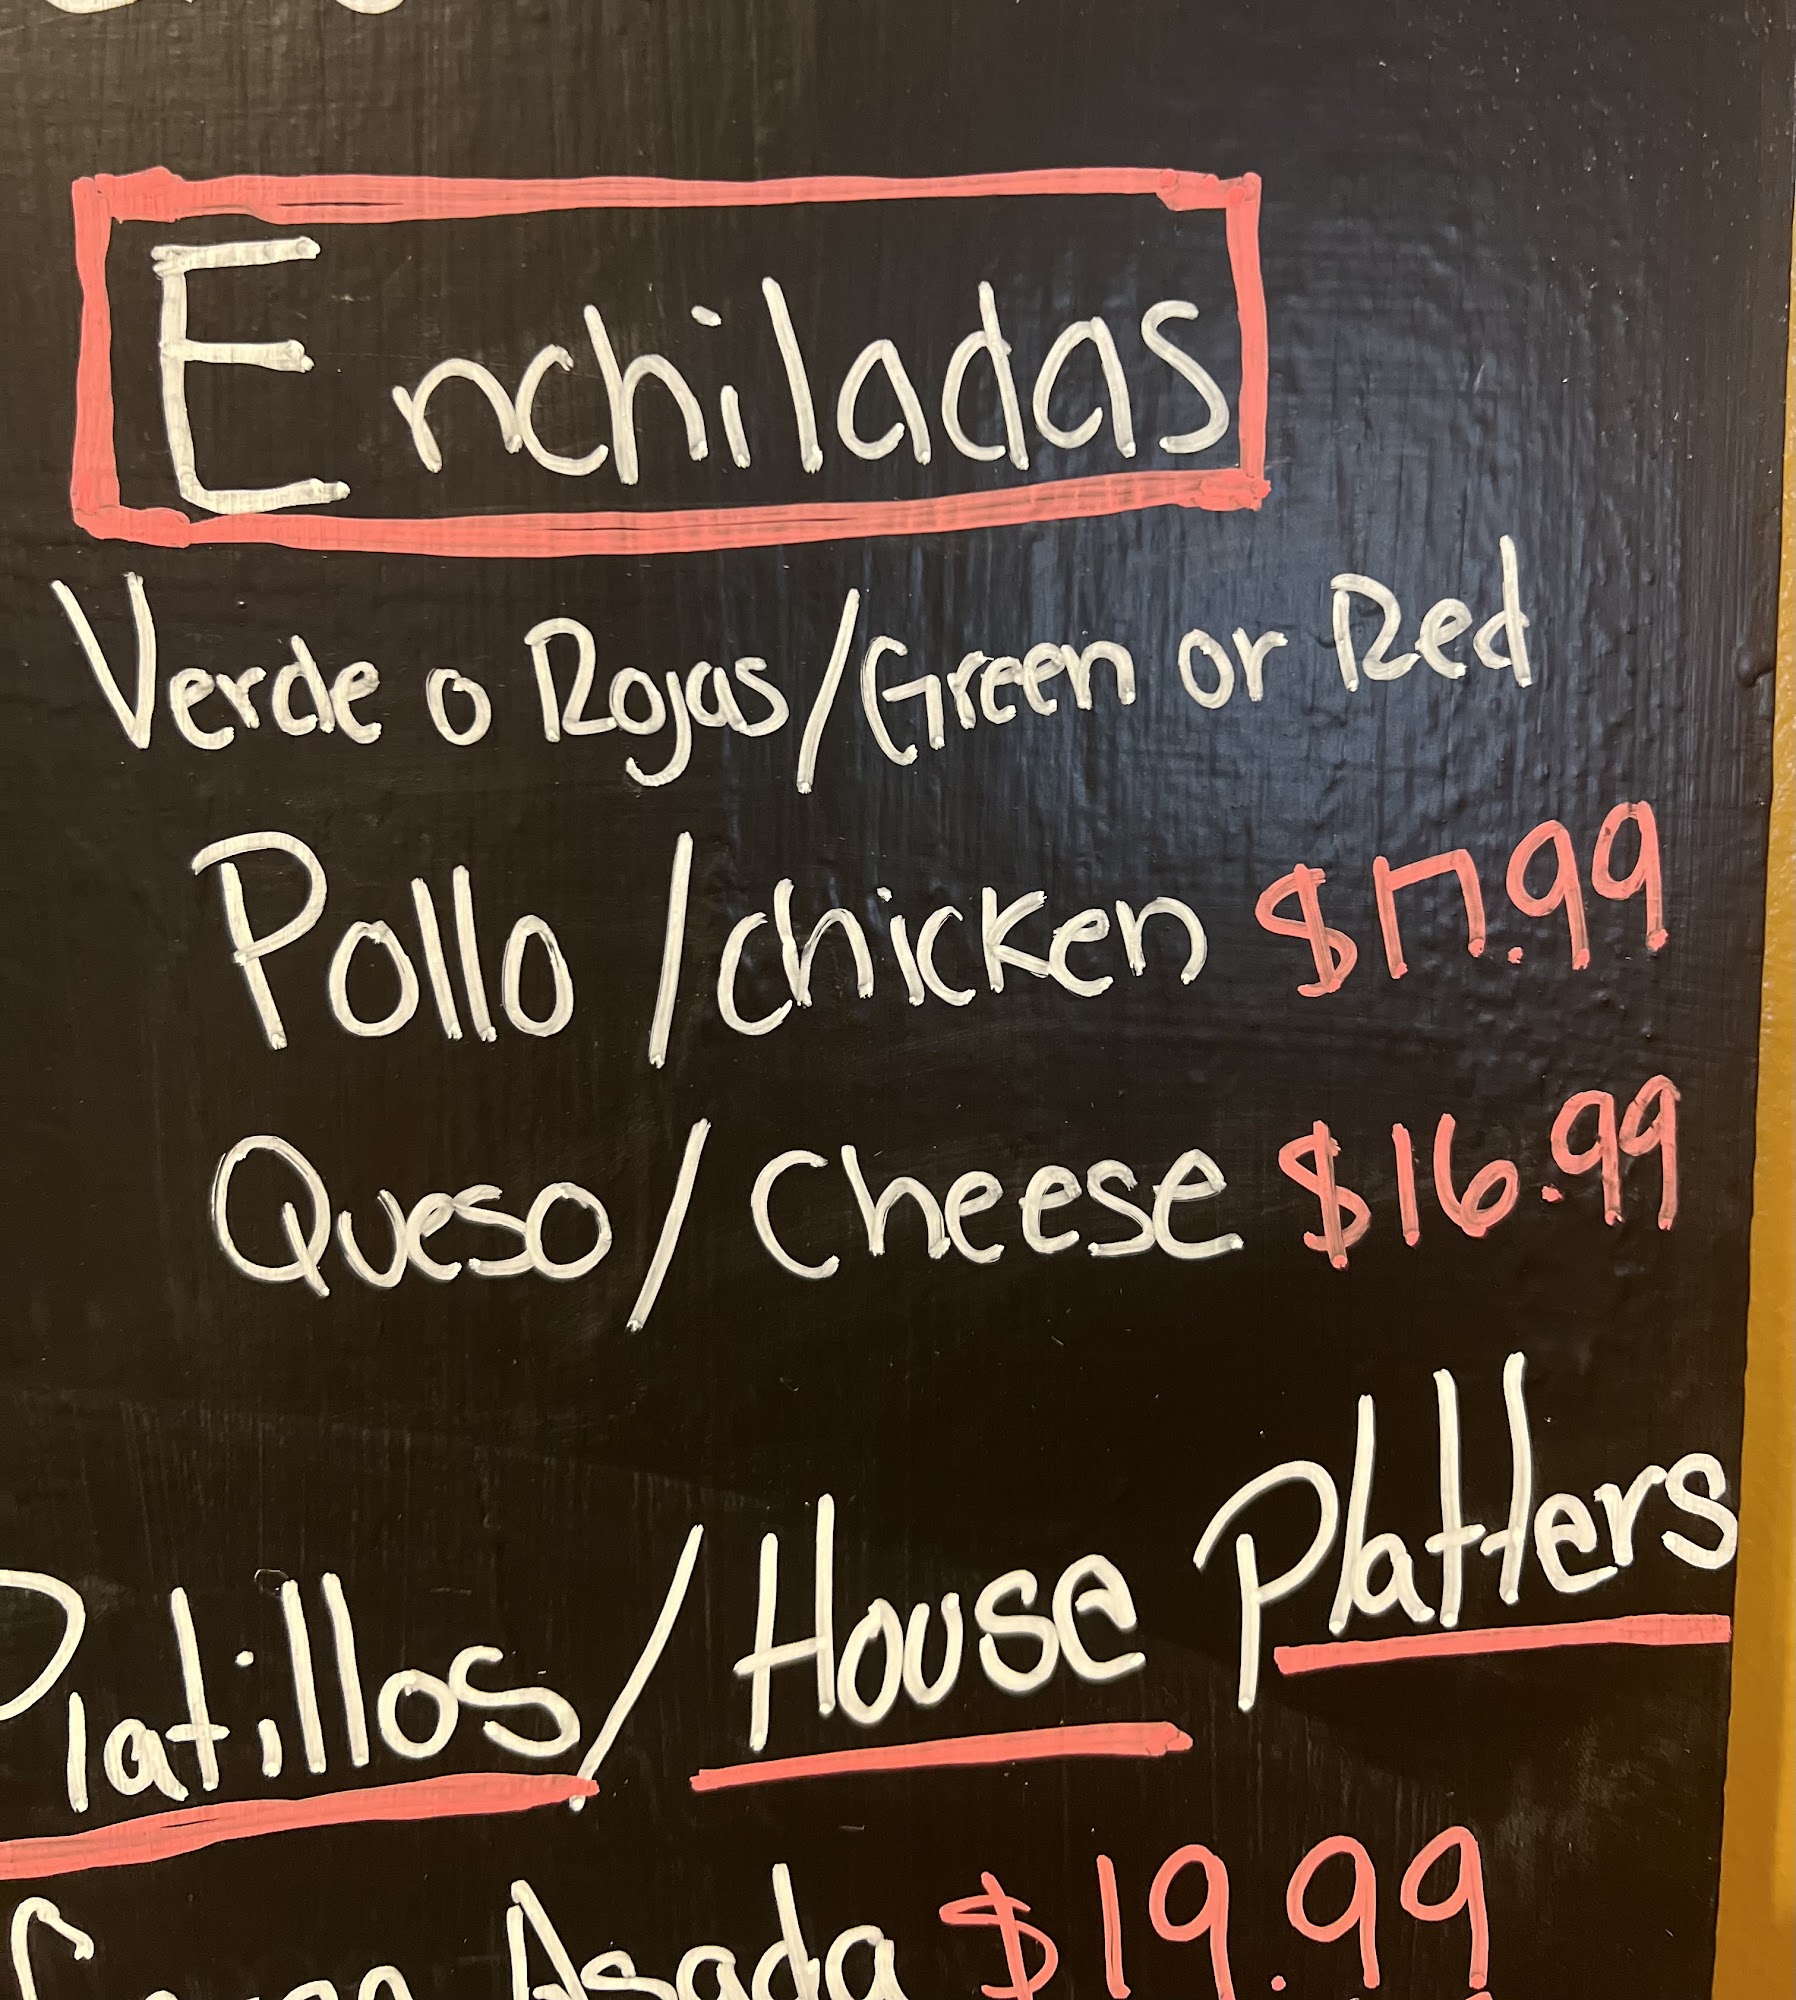 Enchiladas
Verde o Rojas/Green or Red
Pollo/chicken $17.99
Queso/Cheese $16.99
Platillos/House Platters
Asada $19.99